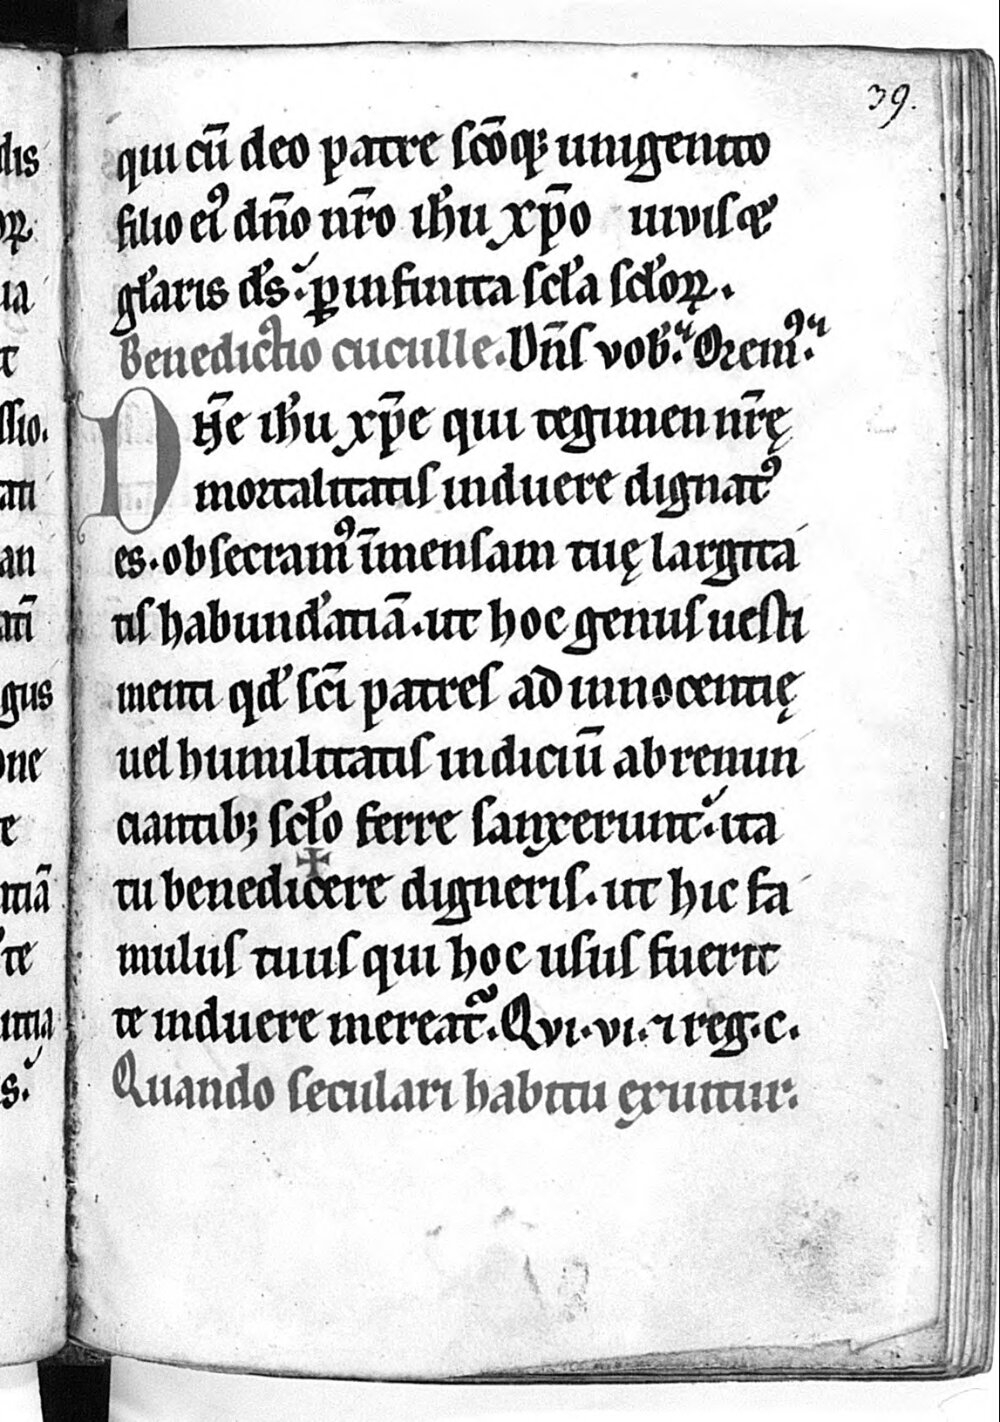 39.
qui cū deo patre scōq; unigenito
filio eiꝰ dño nr̄o ihu xp̄o uivis &
gl̄aris d̄s. ꝑ infinita scl̄a scl̄oꝝ.
Benedictio cuculle. Dn̄s vob. Oremꝰ.
Dn̄e ihu xp̄e qui tegimen nr̄ę
mortalitatis induere dignatꝰ
es. obsecramꝰ īmensam tuę largita
tis habundatiā. ut hoc genus uesti
menti qd̄ sc̄i patres ad innocentię
uel humilitatis indiciū abrenun
ciantib; scl̄o ferre sanxerunt. ita
tu bene✠dicere digneris. ut hic fa
mulus tuus qui hoc usus fuerit
te induere mereat᷑. Qvi. vi. ⁊ reg. c.
Quando seculari habitu exuitur.